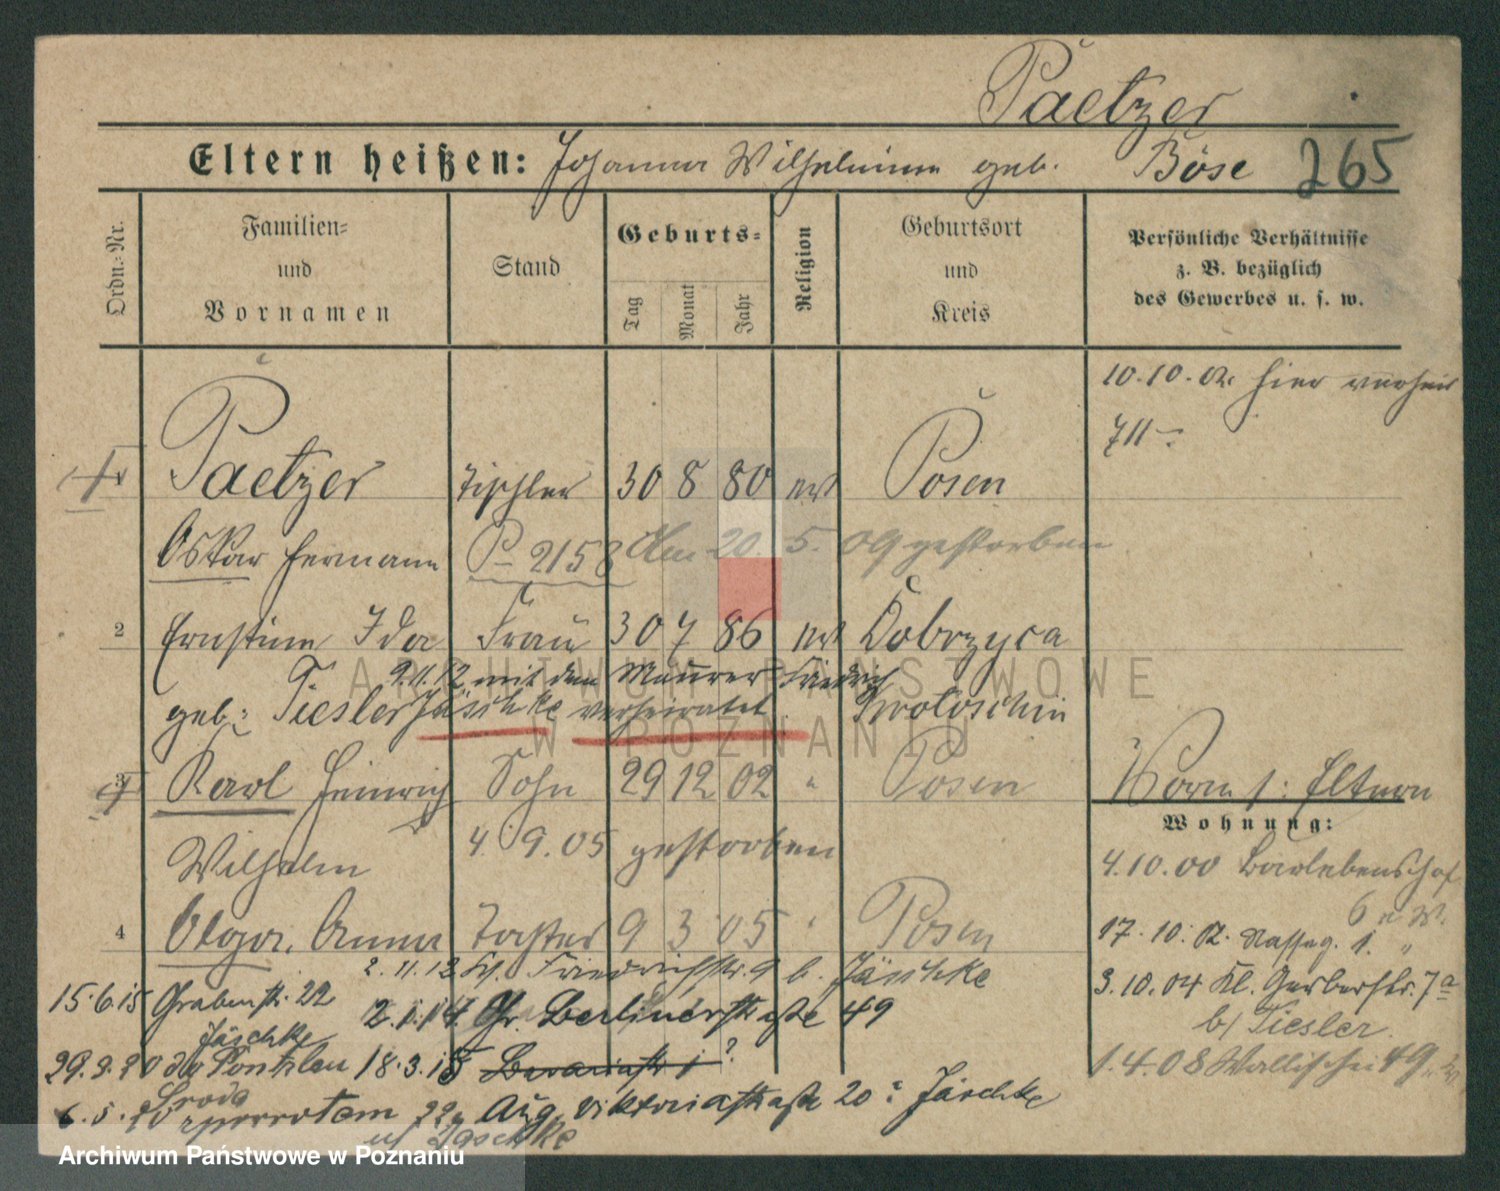 Paetzer
Eltern heißen: Johanna Wilhelmine geb. Böse 265
Ordn.-Nr. Familien- und Vornamen Stand Geburts- Tag Monat Jahr Religion Geburtsort und Kreis Persönliche Verhältnisse z. B. bezüglich des Gewerbes u. s. w.
10.10.02. hier verheir
711
Paetzer Tischler 30 8 80 ev Posen
Oskar Hermann P 2158 Am 20. 5. 09 gestorben
2 Ernstine Ida Frau 30 7 86 ev Dobrzyca
9.11.12 mit dem Maurer Friedrich
geb: Tiesler Jäschke verheiratet Krotoschin
3 Karl Heinrich Sohn 29 12 02 " Posen
Worm f: Eltern
Wohnung:
Wilhelm 4. 9. 05 gestorben
4.10.00 Barlebenshof
6
4 Olga, Anna Tochter 9 3 05 " Posen
17.10.02. Nasseg. 1. "
2.11.12 Friedrichstr. 9 b. Jäschke
3.10.04 Kl. Gerberstr. 7a
15.6.15 Grabenstr. 22 2.1.14. Gr. Berlinerstraße 49
b/ Tiesler.
Jäschke
29.9.20 18.3.15
1.4.08 Wallischei 49
Sroda
6.5. z powrotem 22 Aug. Viktoriastraße 20 : Jäschke
u/ Jaschke
ARCHIWUM PAŃSTWOWE
W POZNANIU
Archiwum Państwowe w Poznaniu